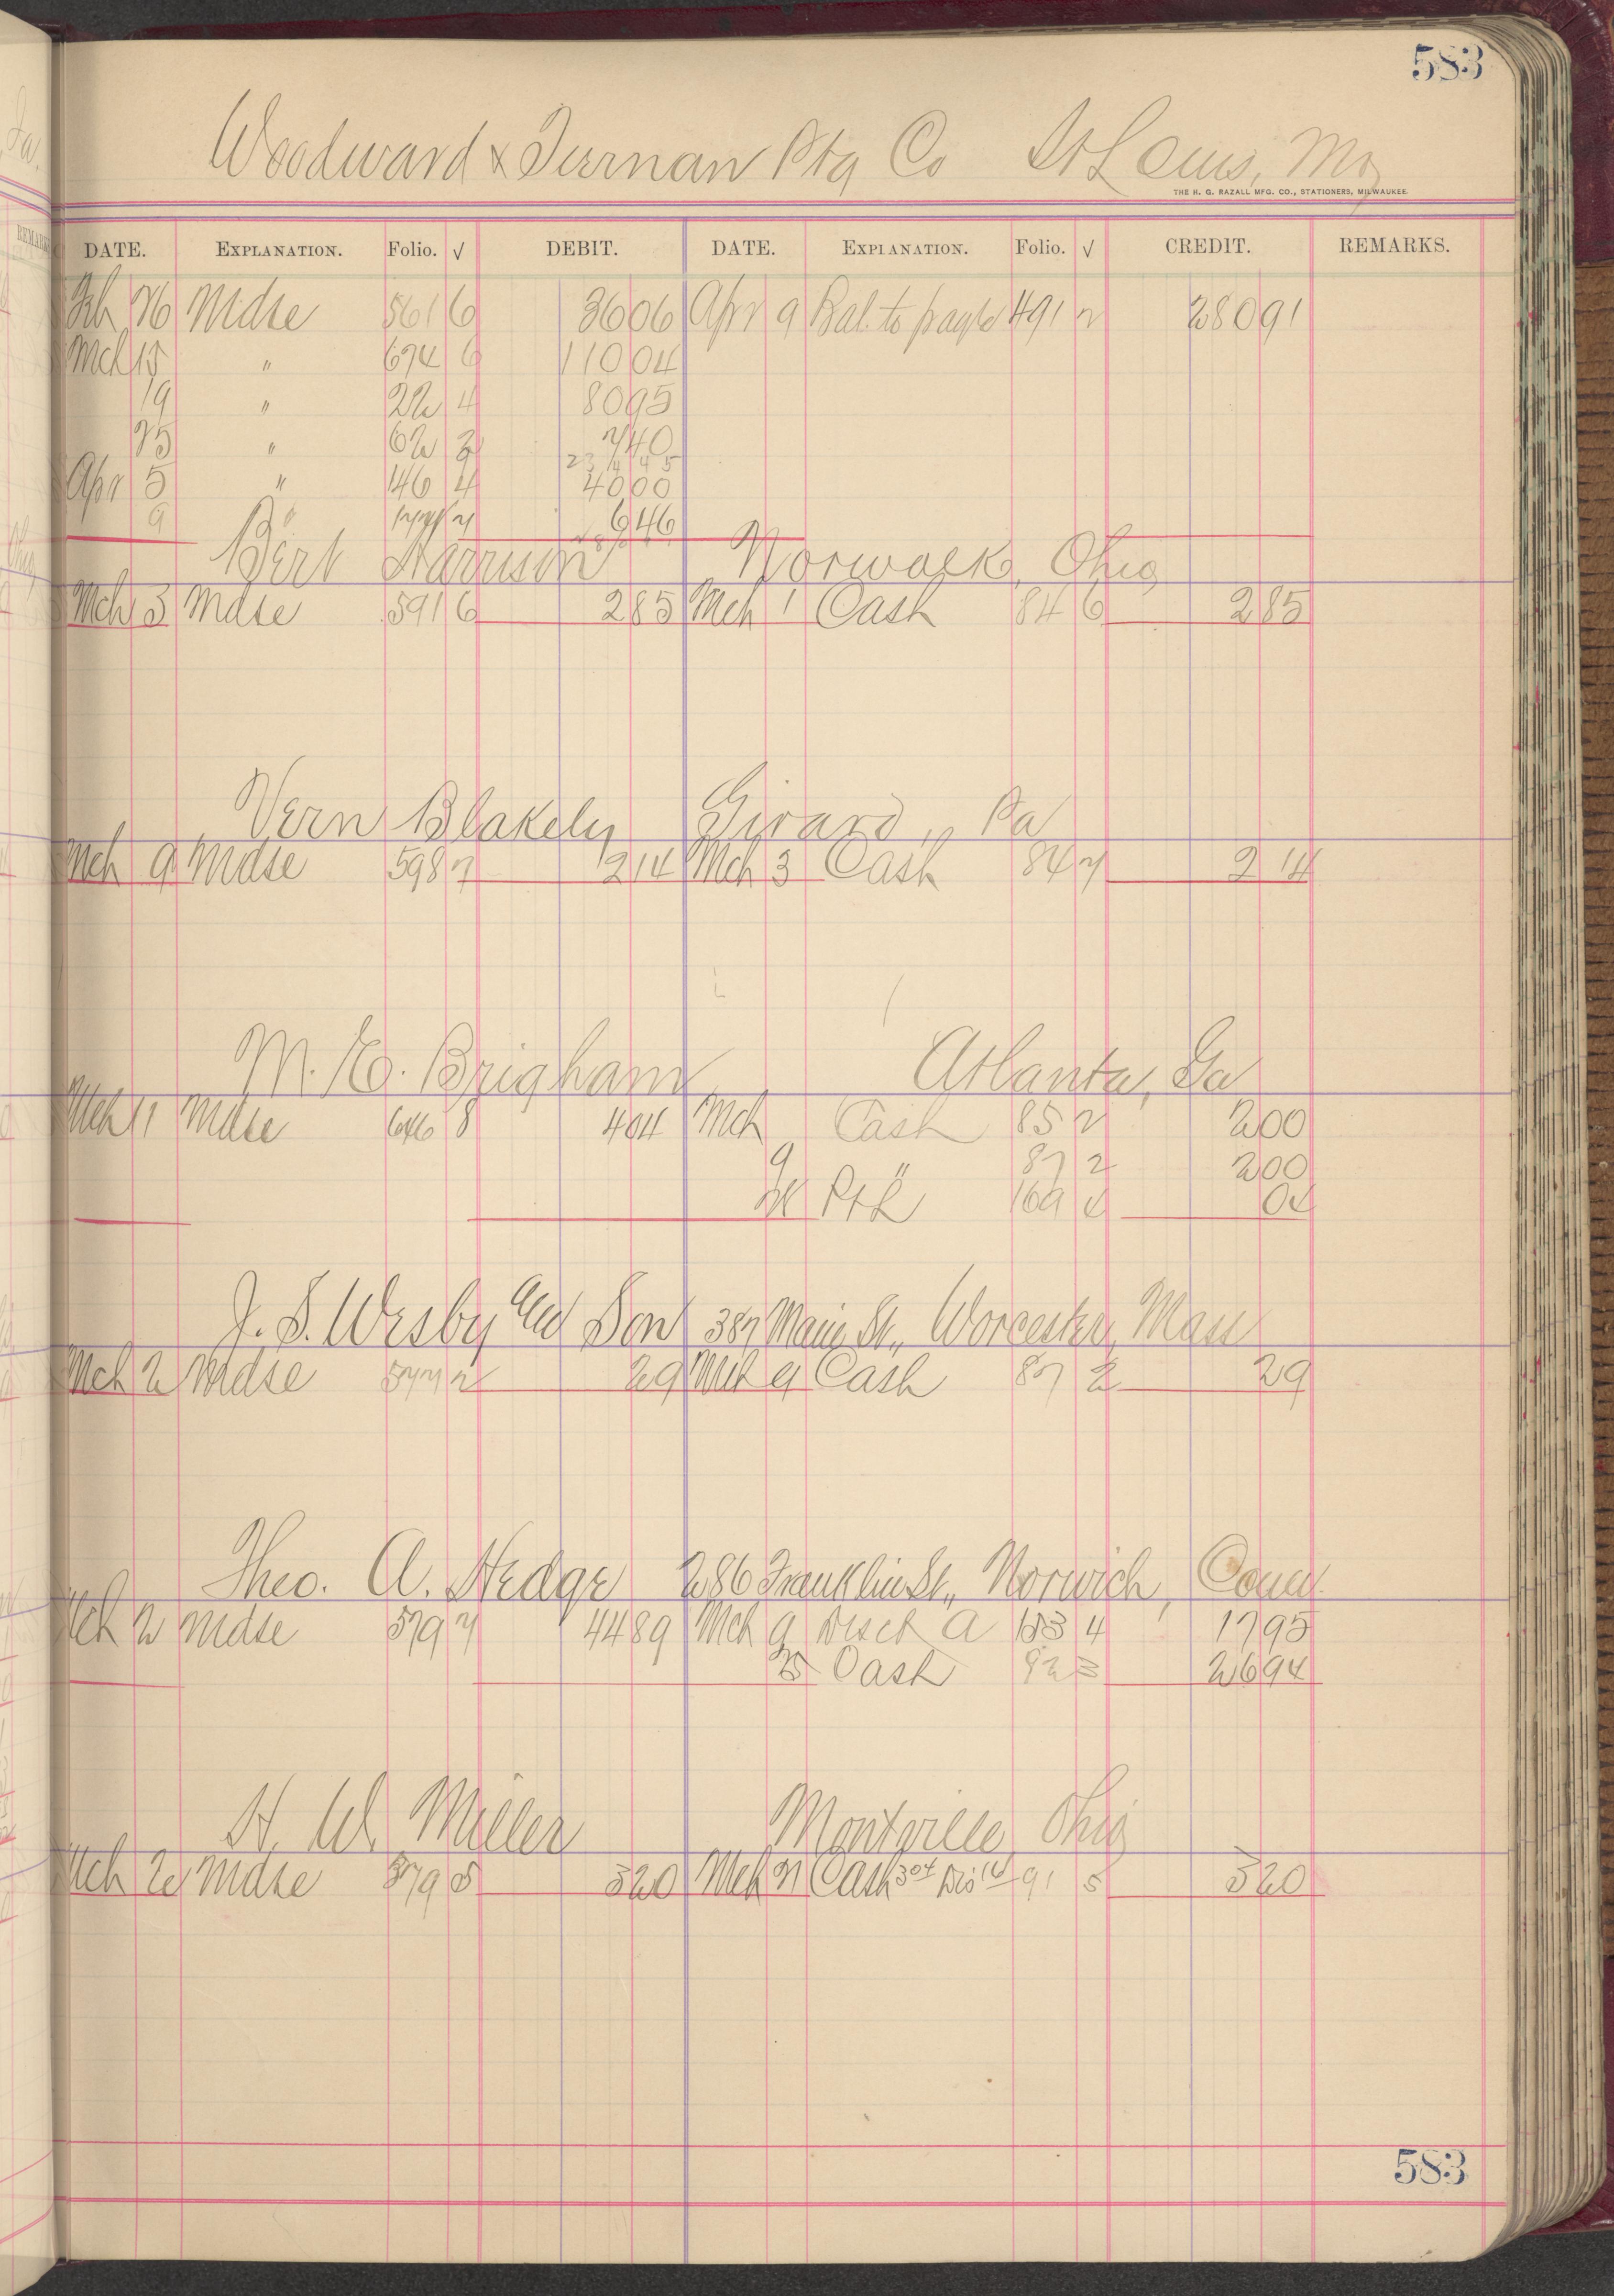 583
Woodward & Tiernan Ptg Co St Louis, Mo
THE H. G. RAZALL MFG. CO., STATIONERS, MILWAUKEE.
DATE. EXPLANATION. Folio. √ DEBIT. DATE. EXPLANATION. Folio. √ CREDIT. REMARKS.
Feb 26 Mdse 561 6 3606 Apr 9 Bal. to page 491 2 28091
Mch 15 " 674 6 11004
19 " 22 4 8095
25 " 62 3 740
23445
Apr 5 " 146 4 4000
9 " 177 2 646
Bert Harrison Norwalk, Ohio
Mch 3 Mdse 591 6 285 Mch 1 Cash 84 6 285
Vern Blakely Girard, Pa
Mch 9 Mdse 598 7 214 Mch 3 Cash 84 7 214
M. E. Brigham Atlanta, Ga
Mch 11 Mdse 646 8 404 Mch Cash 85 2 200
9 " 87 2 200
P&L 169 4 04
J. S. Wesby and Son 387 Main St., Worcester, Mass
Mch 2 Mdse 577 2 29 Mch 9 Cash 87 2 29
Theo. A. Hedge 286 Franklin St., Norwich, Conn
Mch 2 Mdse 579 7 4489 Mch 9 Disct A 183 4 1795
25 Cash 92 3 2694
H. W. Miller Montville Ohio
Mch 2 Mdse 579 5 520 Mch 21 Cash Dis 91 5 520
583